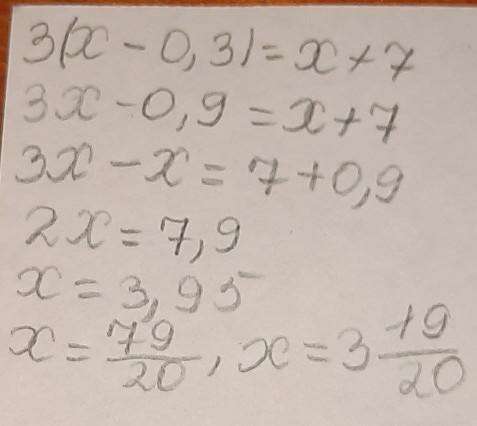 3(x - 0,3) = x + 7
3x - 0,9 = x + 7
3x - x = 7 + 0,9
2x = 7,9
x = 3,95
x = 79/20, x = 3 19/20